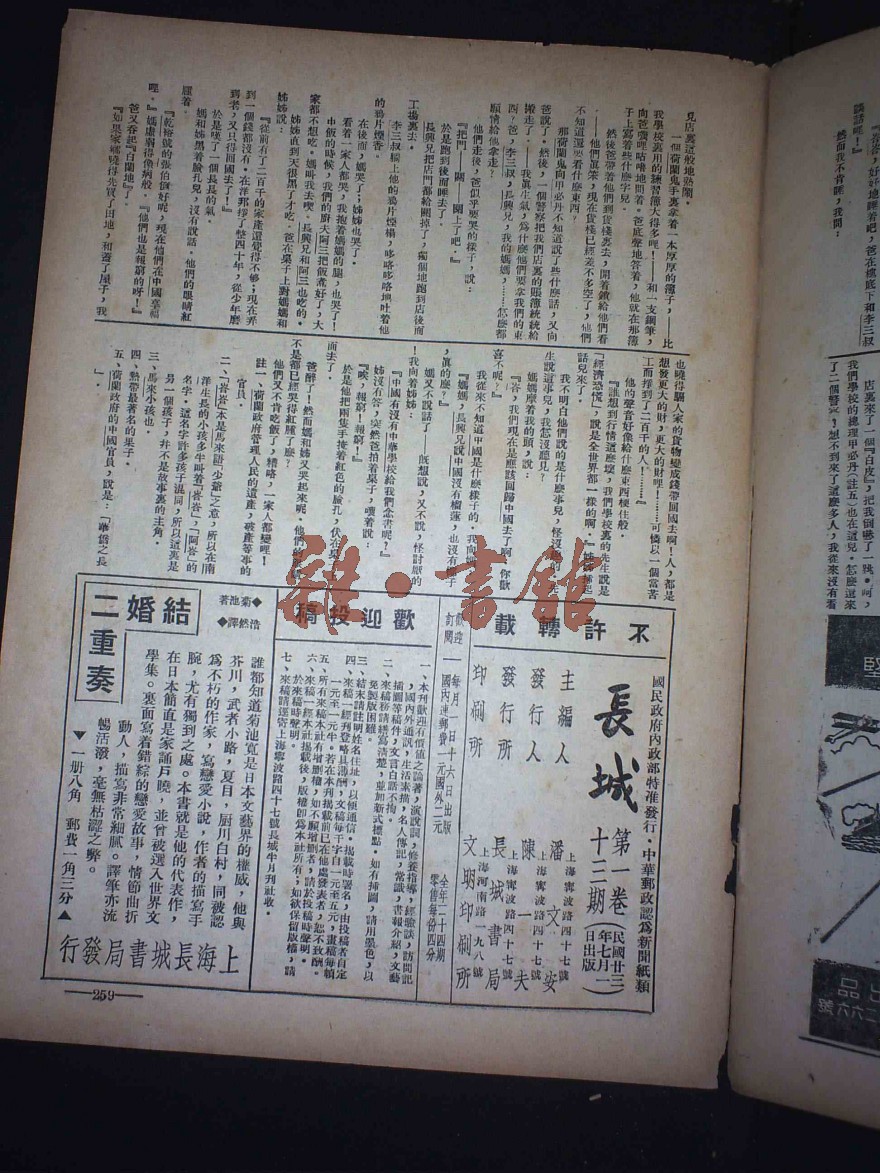 見店裏這般地熱鬧。
一個荷蘭鬼手裏拿着一本厚厚的簿子,——比
我學校裏用的練習簿大得多哩!——和一支鋼筆,
向爸嘴哩咕嚕地問着。爸底聲地答着,他就在那簿
子上寫着些什麽字兒。
然後爸帶着他們到貨棧裏去,開着鎖給他們看
……他們眞笨,現在貨棧已經差不多空了,他們
不知道還要看什麽東西。
那荷蘭鬼向甲必丹不知道說了些什麽話,又向
爸說了。然後,一個警察把我們店裏的賬簿統統給
搬走了。——我眞生氣,爲什麽他們要拿我們的東
西?爸,李三叔,長興兄,我的媽媽,……怎麽都
願情給他拿走?
他們走後,爸似乎要哭的樣子,說:
『把門——關——關上了吧。』
於是跑到後面睡去了。
長興兄把店門都給關掉了,獨個地跑到店後面
工場裏去。
李三叔欄上他的鴉片煙牀,哆咯哆咯地吐着他
的鴉片煙香。
在後面,媽哭了;姊姊也哭了。
看着一家人都哭,我抱着媽媽的腿,也哭了!
中飯的時候,我們的廚夫阿三把飯煮好了,大
家都不想吃。媽叫我去喫。長興兄和阿三也吃的。
姊姊直到天很黑了才吃。爸在桌子上對媽媽和
姊姊說:
『從前有了二百千的家產還覺得不够;現在弄
到一個錢都沒有。在洋邦捱了整四十年,從少年磨
到老,又只得回國去了!』
於是嘆了一個長長的氣。
媽和姊黑着臉孔兒,沒有說話。他們的眼睛紅
腫着。
『乾裕號的張伯倒好呢,現在他們在中國享福
哩。』媽虛弱得像病般。『他們也是報窮的呀!』
爸又吞起『白蘭地』了。
『如果家嘛曉得先買了田地,和蓋了屋子,我
也曉得騙人家的貨物變成錢帶回國去啊!人,都是
想發更大的財,更大的財哩!……可憐以一個當苦
工而捱到了二百千的人!……』
他的聲音好像給什麽東西梗住般。
『誰想到行情這麽壞,我們學校裏的先生說是
「經濟恐慌」,說是全世界都一樣的啊。』姊姊揷起
話兒來了。
我不明白他們說的是什麽事兒,怪沒趣的。先
生說這事兒,我怎沒聽見?
媽媽摩着我的頭,說:
『峇,我們現在是應該回歸中國去了啊,你歡
喜不呢?』
我從來不知道中國是什麽樣子的。我向媽說:
『媽媽,長興兄說中國沒有榴蓮,也沒有椰子
,眞的麽?』
媽又不說話了——旣想說,又不說,怪討厭的
!我向着姊姊:
『中國有沒有中華學校給我們念書呢?』
姊沒有答,突然爸拍着桌子,嘆着說:
『唉,報窮!報窮!』
於是他把兩隻手捧着紅色的臉孔,伏在桌
而去了。
爸醉了!然而媽和姊又哭起來呢。他們的眼
不是都已經哭得紅腫了麽?
他們又不肯吃飯了,糟咯,一家人都變哩!
註一、荷蘭政府管理人民的遺產,破產等事的
官員。
二、「峇峇」本是馬來語「少爺」之意,所以在南
洋生長的小孩多半叫着「峇峇」,「阿峇」的
名字。這名字許多孩子混同,所以這裏是
另一個孩子,幷不是故事裏的主角。
三、馬來小孩也。
四、熱帶最著名的果子。
五、荷蘭政府的中國官員,說是:「華僑之長
」。
不許轉載
國民政府內政部特准發行·中華郵政認爲新聞紙類
長城
第一卷 十三期
(民國廿三年七月一日出版)
主編人 潘文安
上海甯波路四十七號
發行人 陳一夫
上海甯波路四十七號
發行所 長城書局
上海河南路一九八號
印刷所 文明印刷所
歡迎訂閱
每月一日十六日出版 全年二十四期
國內連郵費一元國外二元 零售每份四分
歡迎投稿
一、本刊歡迎有價値之論著,演說詞,修養指導,經驗談,訪問記
,國內外通訊,生活素描,名人傳記,常識,書報介紹,文藝
插圖等稿件,文言白話不拘。
二、來稿務請繕寫清楚,並加新式標點。如有揷圖,請用墨色,以
免製版困難。
三、結末請註明姓名住址,以便通信。揭載時署名,由投稿者自定
四、來稿一經刊登略具薄酬,文稿每千字自一元至五元,畫稿每幀
一元至一元半。若在本刊揭載前已在他處發表者,恕不致酬。
五、所有來稿本社有增删權,如不願增删者,請於投稿時聲明。
六、來稿一經本社揭載後,版權卽爲本社所有;如欲保留版權,請
於來稿時聲明。
七、來稿請逕寄上海甯波路四十七號長城半月刊社收。
結婚二重奏
◆菊池著
浩然譯◆
誰都知道菊池寬是日本文藝界的權威,他與
芥川,武者小路,夏目,厨川白村,同被認
爲不朽的作家,寫戀愛小說,作者的描寫手
腕,尤有獨到之處。本書就是他的代表作,
在日本簡直是家誦戶曉,並曾被選入世界文
學集。裏面寫着錯綜的戀愛故事,情節曲折
動人,描寫非常細膩。譯筆亦流
暢活潑,毫無枯澀之弊。
▼一册八角 郵費一角三分▲
上海長城書局發行
—259—
雜·書館
談話哩!
然而我不會睡,我問:
店裏來了一個『白皮』,把我倒嚇了一跳。呵,
我們學校的總理甲必丹(註五)也在這兒。怎麽還來
了二個警察?想不到來了這麽多人,我從來沒有看
堅
品出